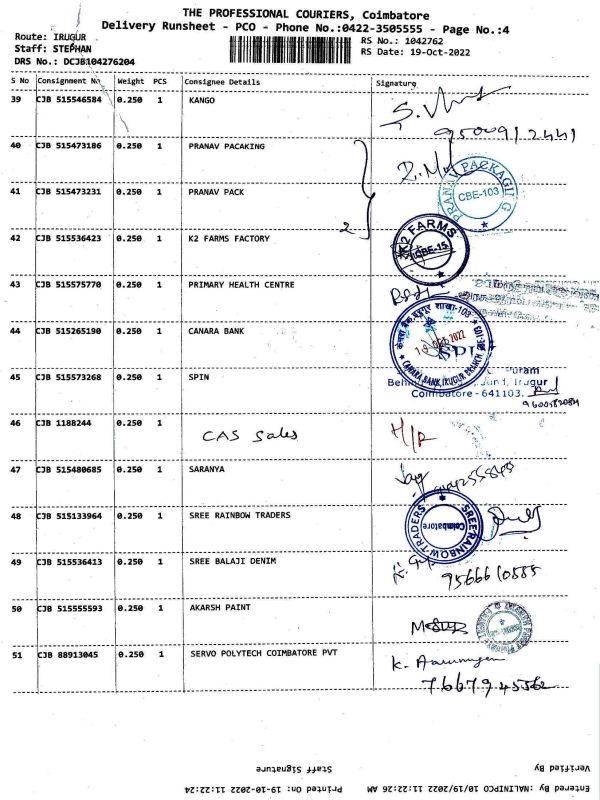 THE PROFESSIONAL COURIERS, Coimbatore
Delivery Runsheet - PCO - Phone No.:0422-3505555 - Page No.:4
Route: IRUGUR
Staff: STEPHAN
DRS No.: DCJB104276204
RS No.: 1042762
RS Date: 19-Oct-2022
S No Consignment No Weight PCS Consignee Details Signature
39 CJB 515546584 0.250 1 KANGO
9500912441
40 CJB 515473186 0.250 1 PRANAV PACAKING
PRANAV PACKAGING
CBE-103
41 CJB 515473231 0.250 1 PRANAV PACK
2
42 CJB 515536423 0.250 1 K2 FARMS FACTORY
K2 FARMS
CBE-15
43 CJB 515575770 0.250 1 PRIMARY HEALTH CENTRE
44 CJB 515265190 0.250 1 CANARA BANK
2022
CANARA BANK, IRUGUR BRANCH
45 CJB 515573268 0.250 1 SPIN
Irugur
Coimbatore - 641103.
46 CJB 1188244 1 CAS Sales
47 CJB 515480685 0.250 1 SARANYA
48 CJB 515133964 0.250 1 SREE RAINBOW TRADERS
SREE RAINBOW TRADERS
Coimbatore
49 CJB 515536413 0.250 1 SREE BALAJI DENIM
9566610585
50 CJB 515555593 0.250 1 AKARSH PAINT
51 CJB 88913045 0.250 1 SERVO POLYTECH COIMBATORE PVT
Staff Signature
Verified By
Printed On: 19-10-2022 11:22:24
Entered By :NALINIPCO 10/19/2022 11:22:26 AM